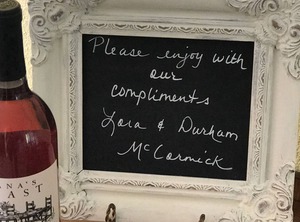 Please enjoy with
our
compliments
Lora & Durham
McCormick
NA'S
AST